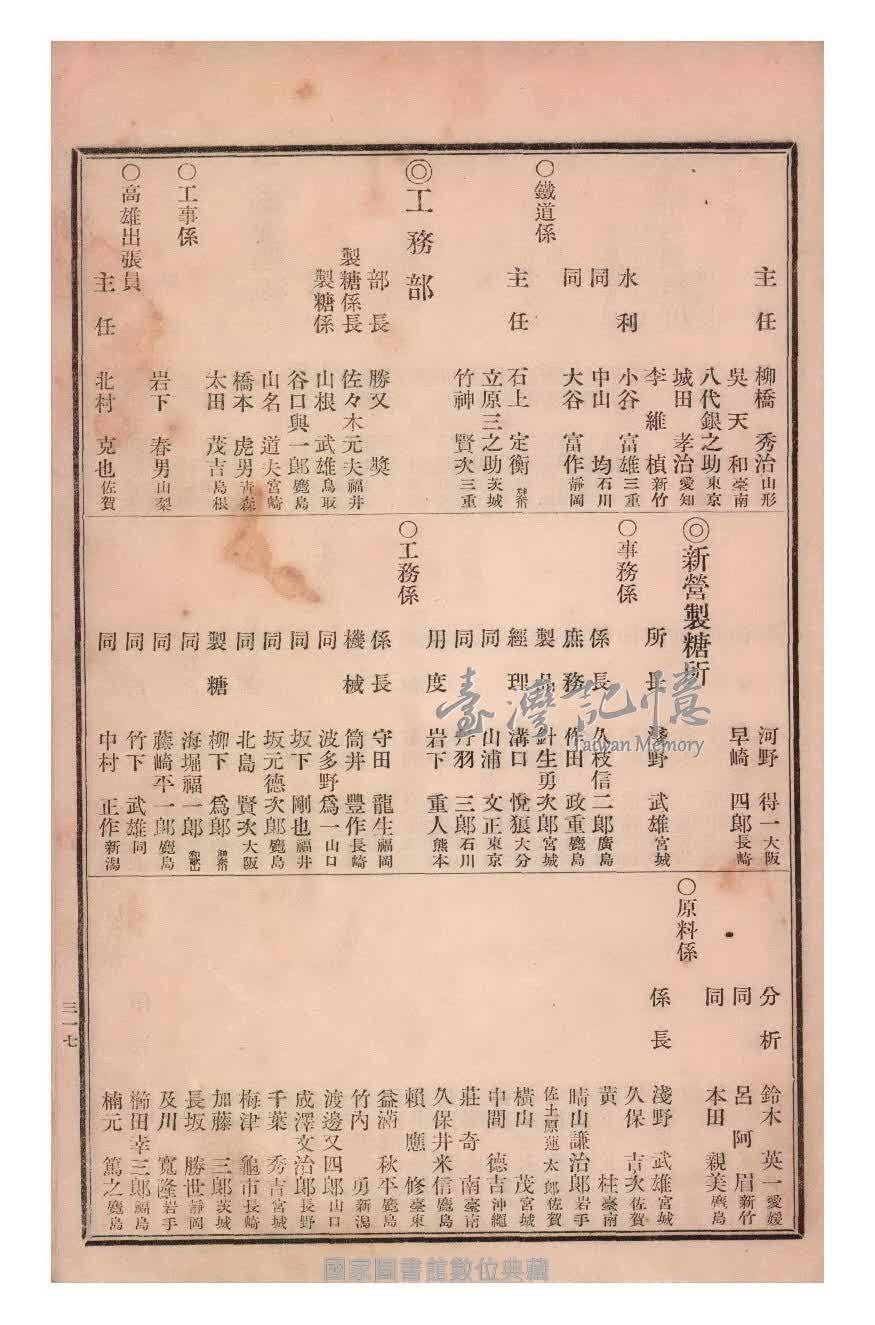 主任 柳橋 秀治 山形
吳 天 和 臺南
八代銀之助 東京
城田 孝治 愛知
李 維 楨 新竹
水利 小谷 富雄 三重
同 中山 均 石川
同 大谷 富作 靜岡
○鐵道係
主任 石上 定衡
立原三之助 茨城
竹神 賢次 三重
◎工務部
部長 勝又 奬
製糖係長 佐々木元夫 福井
製糖係 山根 武雄 鳥取
谷口與一郎 鹿島
山名 道夫 宮崎
橋本 虎男 靑森
太田 茂吉 島根
○工事係
岩下 春男 山梨
○高雄出張員
主任 北村 克也 佐賀
河野 得一 大阪
早崎 四郎 長崎
◎新營製糖所
所長 淺野 武雄 宮城
○事務係
係長 久枝信二郎 廣島
庶務 作田 政重 鹿島
製品 針生勇次郎 宮城
經理 溝口 悅狼 大分
同 山浦 文正 東京
同 丹羽 三郎 石川
用度 岩下 重人 熊本
○工務係
係長 守田 龍生 福岡
機械 筒井 豐作 長崎
同 波多野爲一 山口
同 坂下 剛也 福井
同 坂元德次郎 鹿島
同 北島 賢次 大阪
製糖 柳下 爲郎
同 海堀福一郎 和歌山
同 藤崎平一郎 鹿島
同 竹下 武雄 同
同 中村 正作 新潟
分析 鈴木 英一 愛媛
同 呂 阿 眉 新竹
同 本田 親美 鹿島
○原料係
係長 淺野 武雄 宮城
久保 吉次 佐賀
黃 桂 臺南
晴山謙治郎 岩手
佐土原蓮太郎 佐賀
橫山 茂 宮城
中間 德吉 沖繩
莊 奇 南 臺南
久保井米信 鹿島
賴 應 修 臺東
益滿 秋平 鹿島
竹内 勇 新潟
渡邊又四郎 山口
成澤文治郎 長野
千葉 秀吉 宮城
梅津 龜市 長崎
加藤 三郎 茨城
長坂 勝世 靜岡
及川 寬隆 岩手
櫛田幸三郎 福島
楠元 篤之 鹿島
三一七
臺灣記憶
Taiwan Memory
國家圖書館數位典藏